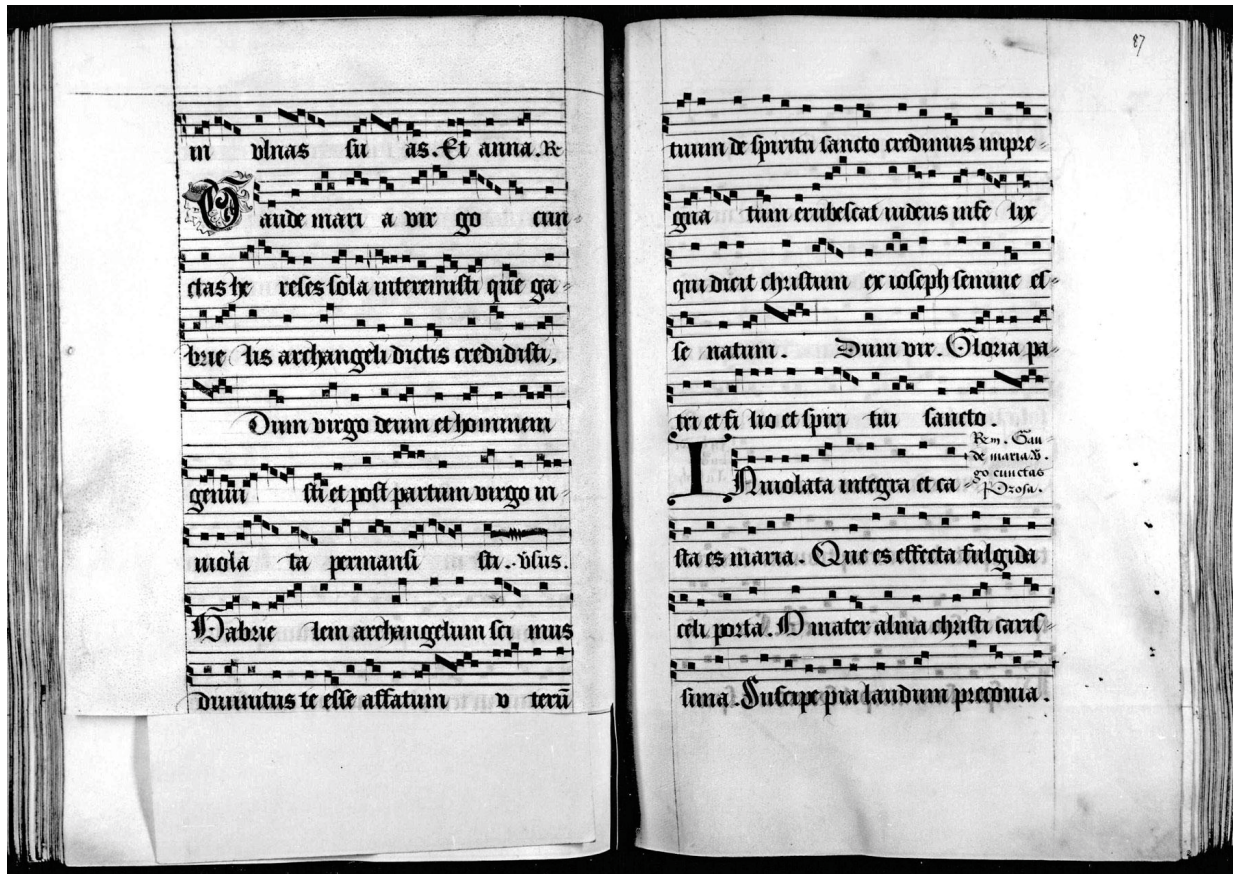 in vlnas su as. Et anna. R
Gaude mari a vir go cun
ctas he reses sola interemisti que ga-
brie lis archangeli dictis credidisti.
Dum virgo deum et hominem
genui sti et post partum virgo in-
uiola ta permansi sti. v̄sus.
Gabrie lem archangelum sci mus
diuinitus te esse affatum v terū
87
tuum de spiritu sancto credimus impre-
gna tum erubescat iudeus infe lix
qui dicit christum ex ioseph semine es-
se natum. Dum vir. Gloria pa-
tri et fi lio et spiri tui sancto.
Rm. Gau-
de maria. v̄.
go cunctas
Prosa.
INuiolata integra et ca-
sta es maria. Que es effecta fulgida
celi porta. O mater alma christi caris-
sima. Suscipe pia laudum preconia.